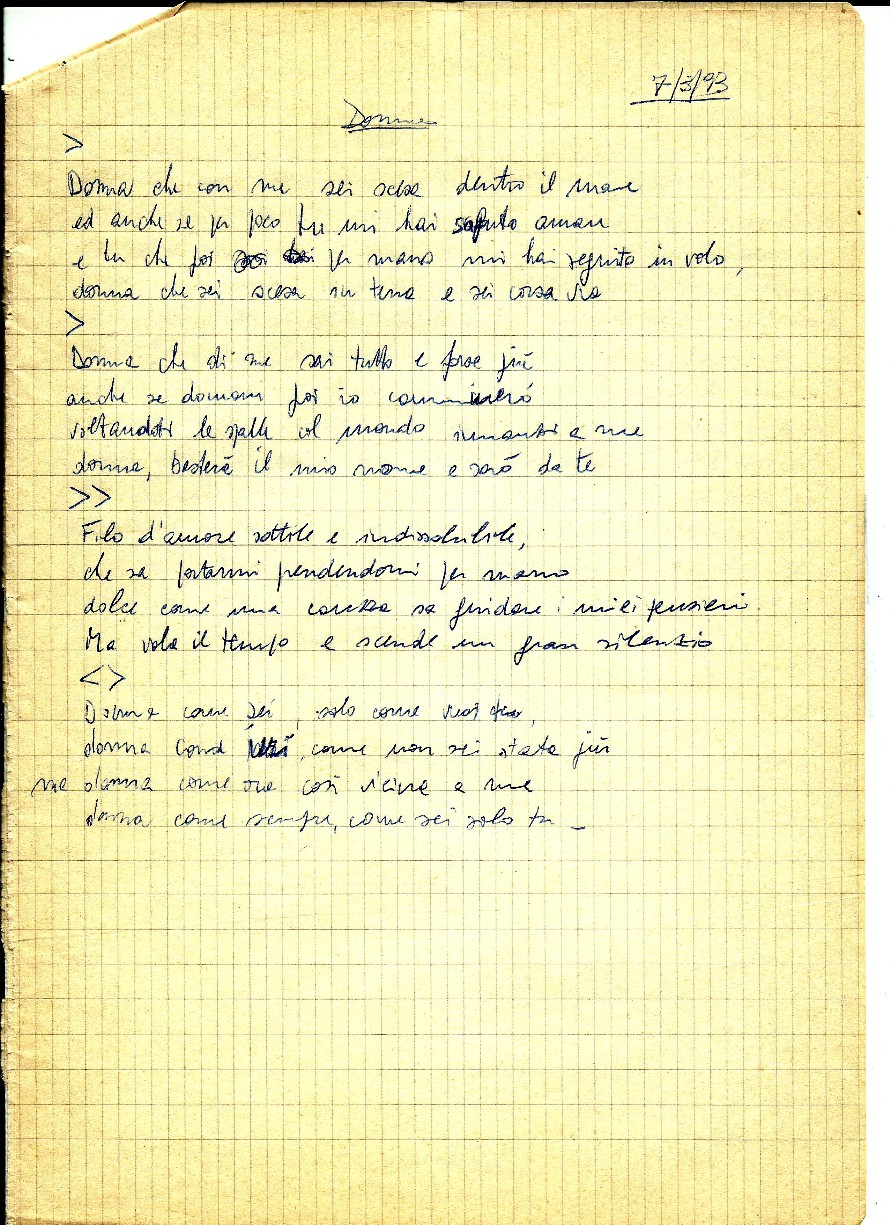 7/3/93
Donna
>
Donna che con me sei scesa dentro il mare
ed anche se per poco tu mi hai saputo amare
e tu che poi per mano mi hai seguito in volo,
donna che sei scesa in terra e sei corsa via
>
Donna che di me sai tutto e forse più
anche se domani poi io camminerò
voltandoti le spalle col mondo innanzi a me
donna, basterà il mio nome e sarò da te
>>
Filo d'amore sottile e indissolubile,
che sa portarmi prendendomi per mano
dolce come una carezza sa guidare i miei pensieri
Ma vola il tempo e scende un gran silenzio
<>
Donna come sei, solo come vuoi tu,
donna come, come non sei stata più
ma donna come ora così vicina a me
donna come sempre, come sei solo tu _